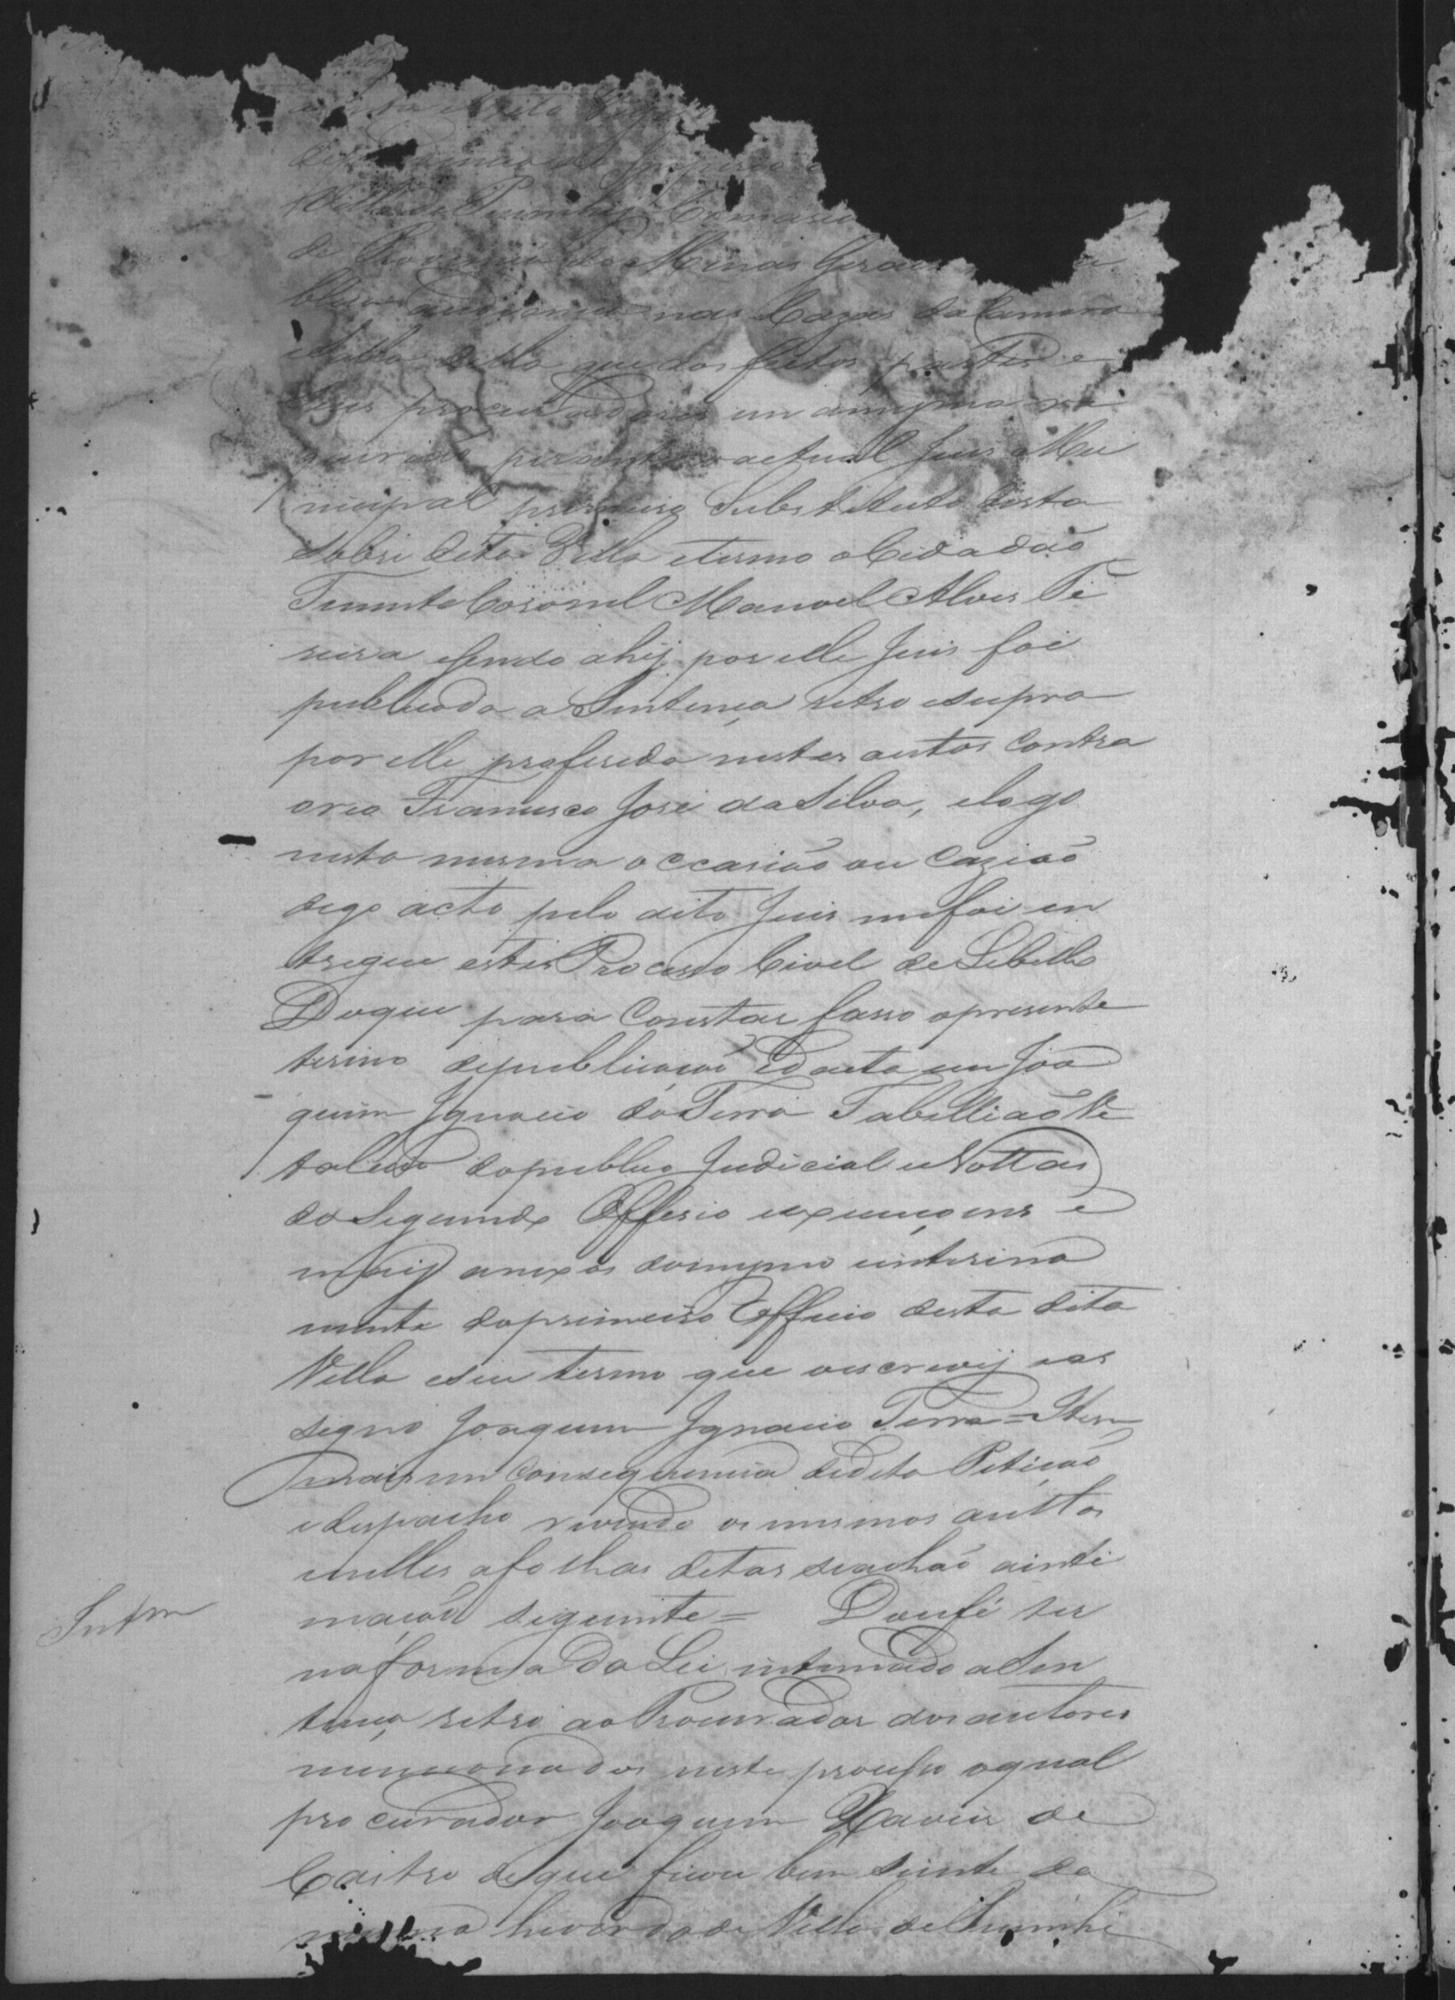 Villa de Piumhy Comarca
de Provincia de Minas Geraes
audiencia nas Cazas da Camara
della que dos feitos partes e
seus procuradores em a mesma re
querido perante o actual Juis Mu
nicipal primeiro Substituto desta
sobre dita Villa etermo o Cidadão
Tenente Coronel Manoel Alves Pe
reira esendo ahij por elle Juis foi
publicada a Sentença retro esupra
por elle proferida nestes autos contra
oreo Francisco José da Silva, elogo
nesta mesma occasião ou cazião
digo acto pelo dito Juis me foi en
tregue estes Processo Civel de Libello
Doque para Constar fasso opresente
termo depublicação Edacta eu Joa
quim Ignacio da Terra Tabellião Vi
talicio dopublico Judicial e Nottas
do Segundo Offisio execuçoens e
maij anexos domesmo einterina
mente doprimeiro Officio desta dita
Villa eseu termo que oescrevij eas
signo Joaquim Ignacio Terra = Item
mais em consequencia dedita Petição
edespacho revendo os mesmos auttos
enelles afolhas ditas seachão ainti
mação seguinte = Doufé ter
Intm
naforma da Lei intimado aSen
tença retro ao Procurador dos autores
mencionados neste processo oqual
procurador Joaquim Xavier de
Castro deque ficou bem siente do
Villa de Piumhi